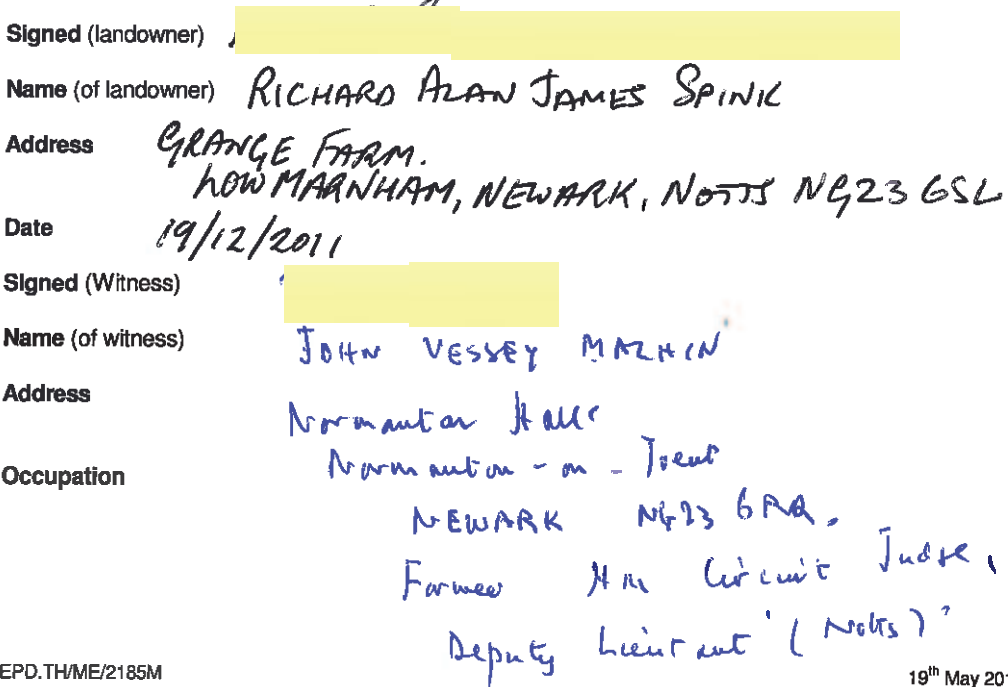 Signed (landowner)
Name (of landowner) RICHARD ALAN JAMES SPINK
Address GRANGE FARM.
LOW MARNHAM, NEWARK, NOTTS NG23 6SL
Date 19/12/2011
Signed (Witness)
Name (of witness) JOHN VESSEY MACHIN
Address
Normanton Hall
Occupation Normanton-on-Trent
NEWARK NG23
Former HM Circuit Judge,
Deputy Lieutenant (Notts)
EPD.TH/ME/2185M 19th May 201